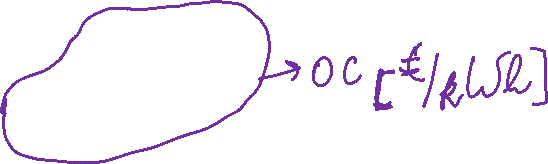 → OC [€/kWh]